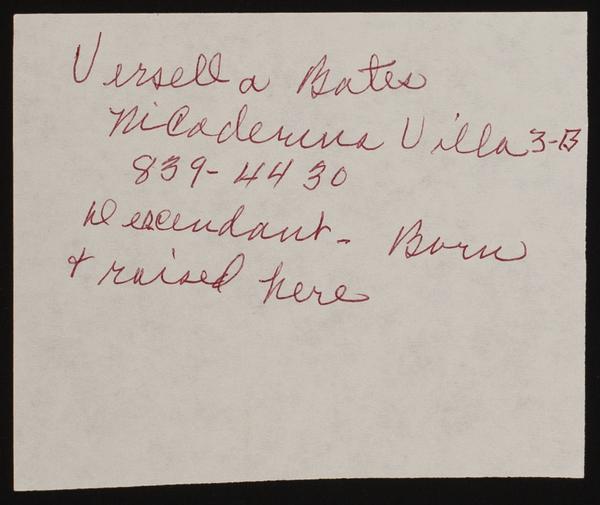 Versella Bates
Nicodemus Villa 3-B
839-4430
Descendant - Born
& raised here